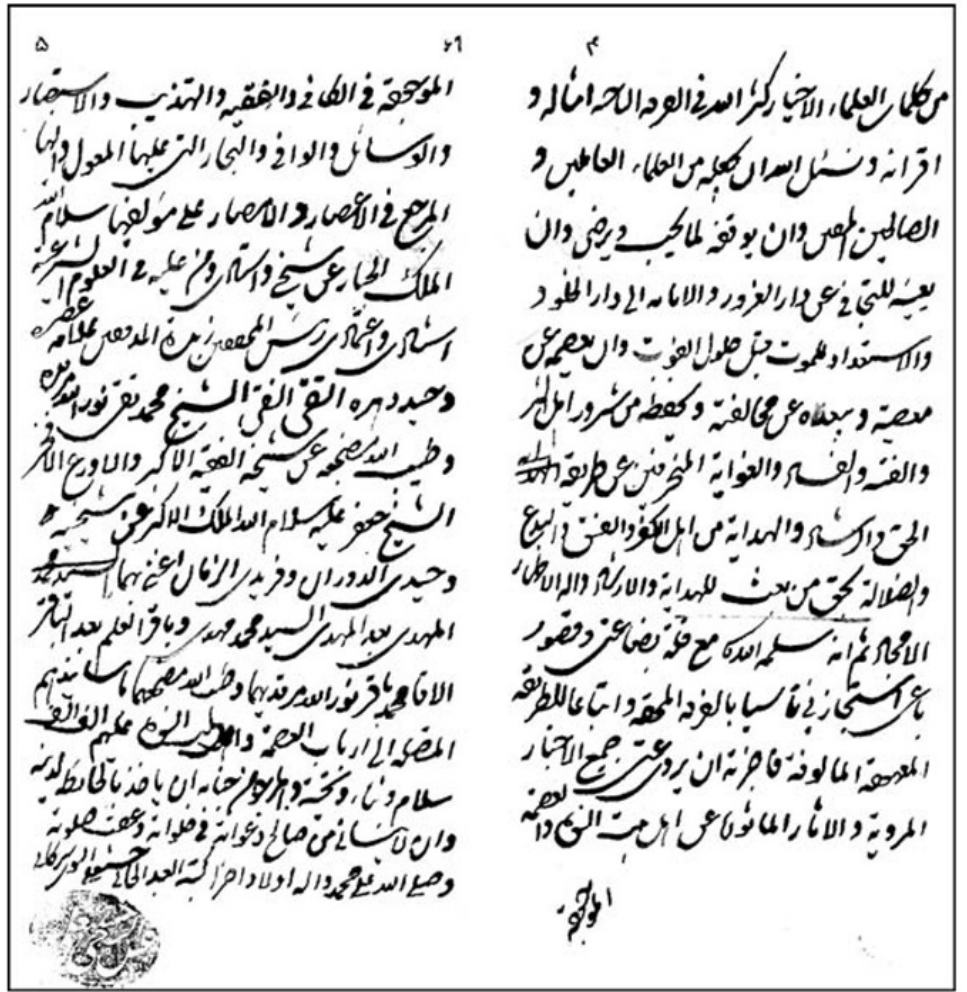 ۴
من كلمات العلماء الاخيار كثر الله في الفرقة الناجية امثاله و
اقرانه و نسئل الله ان يجعله من العلماء العاملين و
الصالحين وان يوفقه لما يحب و يرضى وان
يعينه للتجافي عن دار الغرور والانابة الى دار الخلود
والاستعداد للموت قبل حلول الفوت وان يعصمه عن
معصيته و يبعداه عن مخالفته و يحفظه من شرور اهل الشر
والفتنة والفساد والغواية المنحرفين عن طريقة
الحق والرشاد والهداية من اهل الكفر والفسق والبدع
والضلالة بحق من بعث للهداية والارشاد واله الاطهار
الامجاد ثم انه سلمه الله مع قلة بضاعتي وقصور
باعي استجازني تأسيا بالفرقة المحقة واتباعا للطريقة
المعهودة المالوفة فاجزته ان يروي عني جميع الاخبار
المروية والاثار الماثورة عن اهل بيت النبوة والعصمة
الموجودة
۶۹
۵
الموجودة في الكافي والفقيه والتهذيب والاستبصار
والوسائل والوافي والبحار التي عليها المعول واليها
المرجع في الاعصار والامصار على مؤلفيها سلام الله
الملك الجبار عن شيخي واستادي ومن عليه في العلوم الشرعية
استنادي واعتمادي رئيس المحققين زبدة المدققين علامة عصره
وحيد دهره التقي النقي الشيخ محمد تقي نور الله مرقده
وطيب الله مضجعه عن شيخه الفقيه الاكبر والاورع الافخر
الشيخ جعفر عليه سلام الله الملك الاكبر عن شيخيه
وحيدي الدوران وفريدي الزمان اعني بهما السيد
المهدي بعد المهدي السيد محمد مهدي وباقر العلم بعد الباقر
الاقا محمد باقر نور الله مرقديهما وطيب الله مضجعهما باسانيدهم
المتصلة الى ارباب العصمة عليهم الف الف
سلام وثناء وتحية والمرجو من جنابه ان ياخذ بالحائطة لدينه
وان لا ينساني من صالح دعواته في خلواته وعقب صلوته
وصلى الله على محمد واله اولا واخرا كتبه العبد الجاني